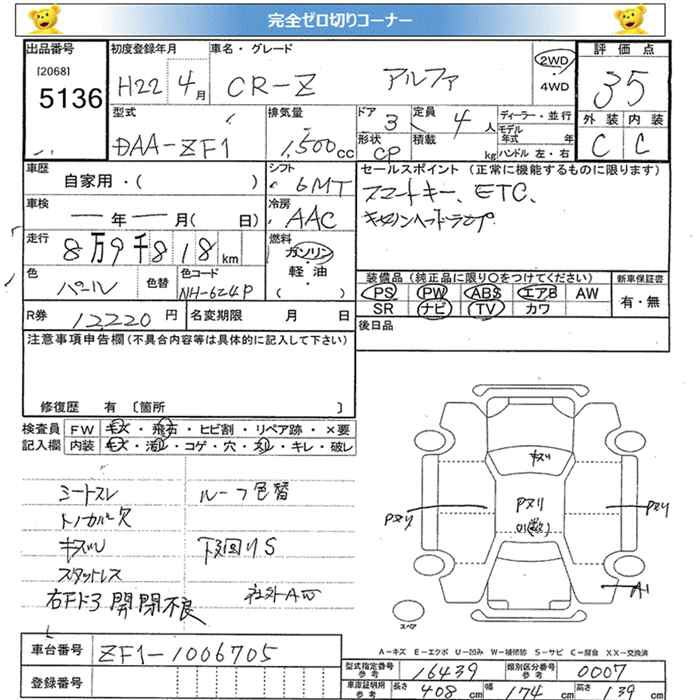 完全ゼロ切りコーナー
出品番号 初度登録年月 車名・グレード 評価点
[2068] 5136 H22年 4月 CR-Z アルファ 2WD・4WD 35
型式 排気量 ドア 定員 ディーラー・並行 外装 内装
DAA-ZF1 1,500cc 3 4人 モデル年式 年 C C
形状 CP 積載 kg ハンドル 左・右
車歴 シフト セールスポイント(正常に機能するものに限ります)
自家用・( ) 6MT スマートキー、ETC、
車検 冷房 キセノンヘッドランプ
ー年ー月( 日) AAC
走行 燃料
8万9千818km ガソリン
軽・油
( )
色 パール 色替 色コード NH-624P
装備品(純正品に限り○をつけてください) 新車保証書
PS PW ABS エアB AW 有・無
SR ナビ TV カワ
R券 12220円 名変期限 月 日 後日品
注意事項申告欄(不具合内容等は具体的に記入して下さい)
修復歴 有 〔箇所 〕
検査員 FW キズ・飛石・ヒビ割・リペア跡・×要
記入欄 内装 キズ・汚れ・コゲ・穴・スレ・キレ・破レ
シートスレ ルーフ色替
トノカバー欠
キズU 下廻りS
スタットレス
右Fドア開閉不良 社外AW
キズリ
Pヌリ Pヌリ Pヌリ
A1
スペア
A-キズ E-エクボ U-凹み W-補修跡 S-サビ C-腐食 XX-交換済
車台番号 ZF1-1006705
登録番号
型式指定番号 参考 16439 類別区分番号 参考 0007
車庫証明用 参考 長さ 408cm 幅 174cm 高さ 139cm